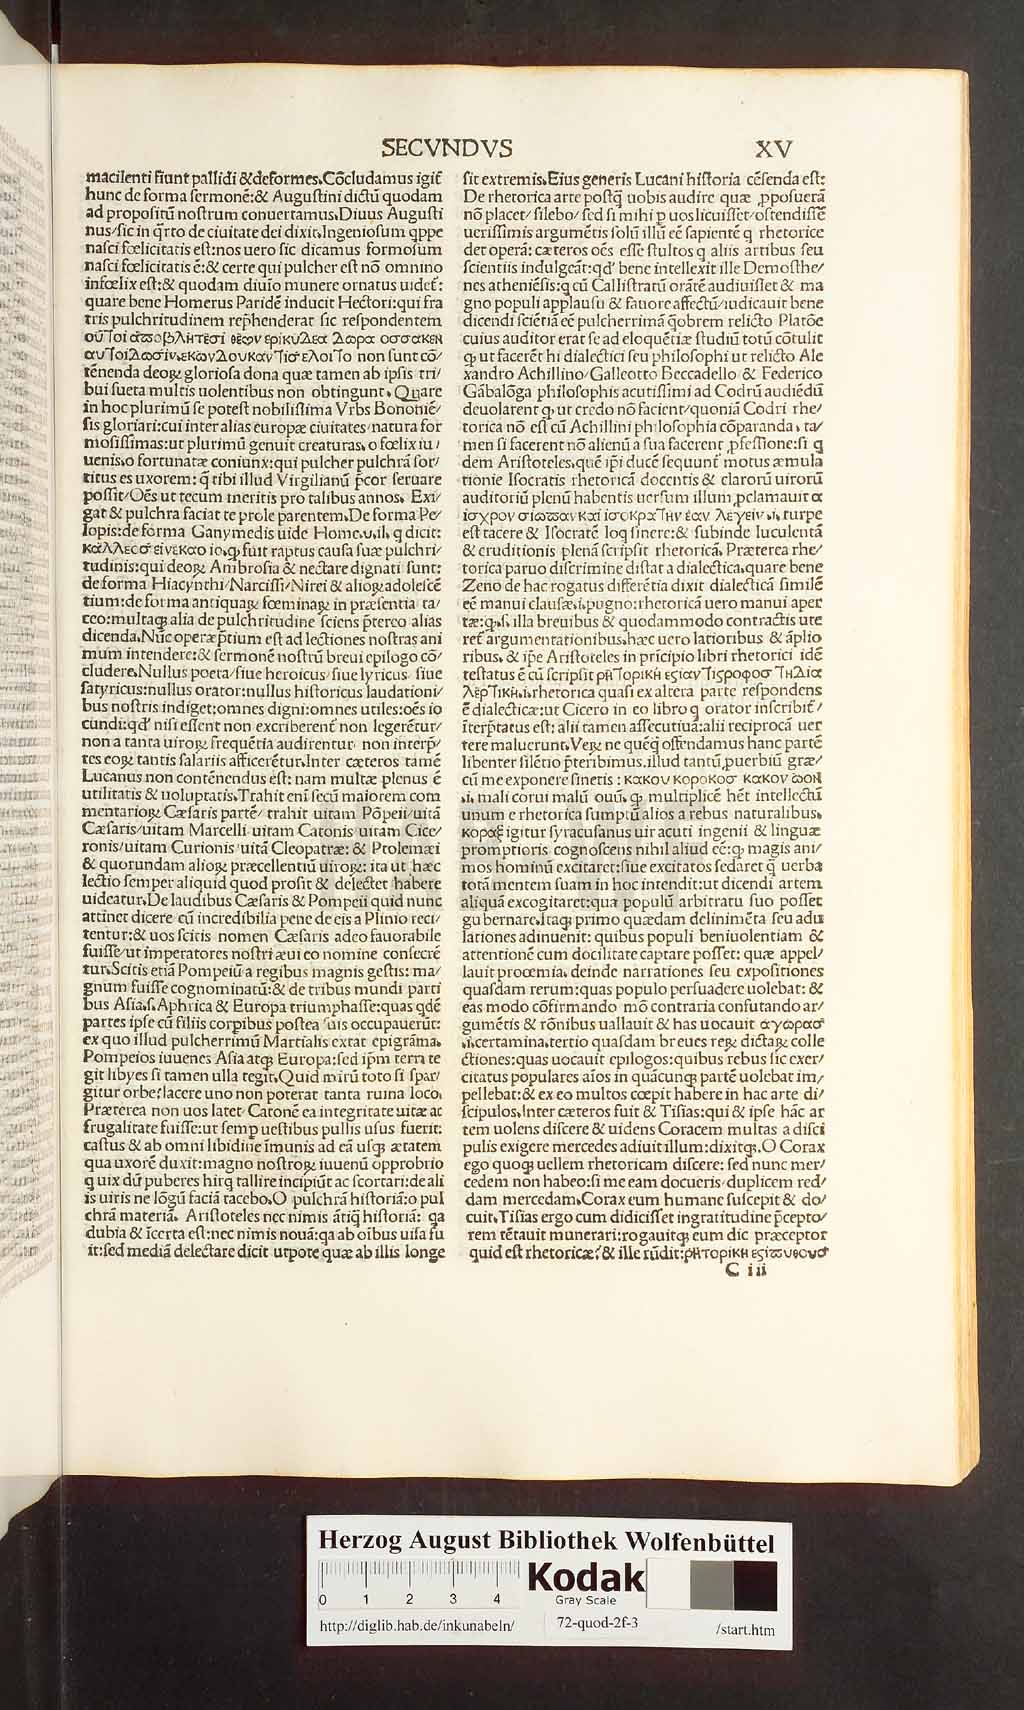 SECVNDVS XV
macilenti fiunt pallidi & deformes. Cōcludamus igit᷑
hunc de forma sermonē: & Augustini dictū quodam
ad propositū nostrum conuertamus. Diuus Augusti
nus/sic in q̄rto de ciuitate dei dixit. Ingeniosum q̄ppe
nasci fœlicitatis est: nos uero sic dicamus formosum
nasci fœlicitatis ē: & certe qui pulcher est nō omnino
infœlix est: & quodam diuīo munere ornatus uidet᷑:
quare bene Homerus Paridē inducit Hectori: qui fra
tris pulchritudinem rep̄henderat sic respondentem
οὔτοι ἀποβλητεσι θεων ερικυδεα δωρα οσσακεν
αυτοιδωσιν εκων δουκαν τισ ελοιτο non sunt cō/
tēnenda deoꝝ gloriosa dona quæ tamen ab ipsis tri/
bui sueta multis uolentibus non obtingunt. Quare
in hoc plurimū se potest nobilissima Vrbs Bononiē/
sis gloriari: cui inter alias europæ ciuitates natura for
mosissimas: ut plurimū genuit creaturas. o fœlix iu/
uenis. o fortunatæ coniunx: qui pulcher pulchrā for/
titus es uxorem: q̄ tibi illud Virgilianū p̄cor seruare
possit/Oēs ut tecum meritis pro talibus annos. Exi/
gat & pulchra faciat te prole parentem. De forma Pe/
lopis: de forma Ganymedis uide Home. u. il. q dicit:
καλλεοσ εινεκαοιο. q̨ fuit raptus causa suæ pulchri/
tudinis: qui deoꝝ Ambrosia & nectare dignati sunt:
de forma Hiacynthi/Narcissi/Nirei & alioꝝ adolescē
tium: de forma antiquaꝝ fœminaꝝ in præsentia ta/
ceo: multaq̨ alia de pulchritudine sciens p̄tereo alias
dicenda. Nūc operæp̄tium est ad lectiones nostras ani
mum intendere: & sermonē nostrū breui epilogo cō/
cludere. Nullus poeta/siue heroicus/siue lyricus siue
satyricus: nullus orator: nullus historicus laudationi/
bus nostris indiget: omnes digni: omnes utiles: oēs io
cundi: qd' nisi essent non excriberent᷑ non legerēt᷑ur/
non a tanta uiroꝝ frequētia audirentur non interp̄/
tes eoꝝ tantis salariis afficerēt᷑ur. Inter cæteros tamē
Lucanus non contēnendus est: nam multæ plenus ē
utilitatis & uoluptatis. Trahit eni secū maiorem com
mentarioꝝ Cæsaris partē/trahit uitam Pōpeii/uitā
Cæsaris/uitam Marcelli uitam Catonis uitam Cice/
ronis/uitam Curionis uitā Cleopatræ: & Ptolemæi
& quorundam alioꝝ præcellentiū uiroꝝ: ita ut hæc
lectio semper aliquid quod prosit & delectet habere
uideatur. De laudibus Cæsaris & Pompeii quid nunc
attinet dicere cū incredibilia pene de eis a Plinio reci/
tentur: & uos scitis nomen Cæsaris adeo fauorabile
fuisse/ut imperatores nostri æui eo nomine consecrē
tur. Scitis etiā Pompeiū a regibus magnis gestis: ma/
gnum fuisse cognominatū: & de tribus mundi parti
bus Asia. s. Aphrica & Europa triumphasse: quas qdē
partes ipse cū filiis corpibus postea suis occupauerūt:
ex quo illud pulcherrimū Martialis extat epigrāma.
Pompeios iuuenes Asia atq̨ Europa: sed ip̄m terra te
git libyes si tamen ulla tegit. Quid mirū toto si spar/
gitur orbe: Iacere uno non poterat tanta ruina loco.
Præterea non uos latet Catonē ea integritate uitæ ac
frugalitate fuisse: ut semp uestibus pullis usus fuerit:
castus & ab omni libidine īmunis ad eā usq̨ ætatem
qua uxorē duxit: magno nostroꝝ iuuenū opprobrio
q uix dū puberes hirq̨ tallire incipiūt ac scortari: de ali
is uiris ne lōgū faciā tacebo. O pulchrā historiā: o pul
chrā materiā. Aristoteles nec nimis ātiq̄ historiā: qa
dubia & īcerta est: nec nimis nouā: qa ab oībus uisa fu
it: sed mediā delectare dicit utpote quæ ab illis longe
sit extremis. Eius generis Lucani historia cēsenda est:
De rhetorica arte postq̄ uobis audire quæ ꝓposuerā
nō placet/silebo/sed si mihi p uos licuisset/ostendissē
uerissimis argumētis solū illū eē sapientē q rhetorice
det operā: cæteros oēs esse stultos q aliis artibus seu
scientiis indulgeāt: qd' bene intellexit ille Demosthe/
nes atheniēsis: q cū Callistratū orātē audiuisset & ma
gno populi applausu & fauore affectū/iudicauit bene
dicendi sciētiā eē pulcherrimā q̄obrem relicto Platōe
cuius auditor erat se ad eloquētiæ studiū totū cōtulit
q̨ ut facerēt hi dialectici seu philosophi ut relicto Ale
xandro Achillino/Galleotto Beccadello & Federico
Gābalōga philosophis acutissimi ad Codrū audiēdū
deuolarent q̨ ut credo nō facient/quoniā Codri rhe/
torica nō est cū Achillini philosophia cōparanda. ta/
men si facerent nō alienū a sua facerent ꝓfessione: si q
dem Aristoteles. quē ip̄i ducē sequunt᷑ motus æmula
tionie Isocratis rhetoricā docentis & clarorū uirorū
auditoriū plenū habentis uersum illum ꝓclamauit α
ισχρον σιωπαν και ισοκρατην έαν λεγειν. i. turpe
est tacere & Isocratē loq sinere: & subinde luculentā
& eruditionis plenā scripsit rhetoricā. Præterea rhe/
torica paruo discrimine distat a dialectica. quare bene
Zeno de hac rogatus differētia dixit dialecticā similē
eē manui clausæ. i. pugno: rhetoricā uero manui aper
tæ: q̨. s. illa breuibus & quodammodo contractis ute
ret᷑ argumentationibus. hæc uero latioribus & āplio
ribus. & ip̄e Aristoteles in prīcipio libri rhetorici idē
testatus ē cū scripsit ρητορικη εςιαντιςροφοσ τηδια
λερτικη. i. rhetorica quasi ex altera parte respondens
ē dialecticæ: ut Cicero in eo libro q orator inscribit᷑/
īterp̄tatus est: alii tamen assecutiuā: alii reciprocā uer
tere maluerunt. Veꝝ ne quēq̄ offendamus hanc partē
libenter silētio p̄teribimus. illud tantū ꝓuerbiū græ/
cū me exponere sinetis : κακου κοροκοσ κακον ωον
.i. mali corui malū ouū. q̨ multiplicē hēt intellectū
unum e rhetorica sumptū alios a rebus naturalibus.
κοραξ igitur syracusanus uir acuti ingenii & linguæ
promptioris cognoscens nihil aliud eē: q̨ magis ani/
mos hominū excitaret: siue excitatos sedaret q̄ uerba
totā mentem suam in hoc intendit: ut dicendi artem
aliquā excogitaret: qua populū arbitratu suo posset
gubernare. Itaq̨ primo quædam delinimēta seu adu
lationes adinuenit: quibus populi beniuolentiam &
attentionē cum docilitate captare posset: quæ appel/
lauit proœmia. deinde narrationes seu expositiones
quasdam rerum: quas populo persuadere uolebat: &
eas modo cōfirmando mō contraria confutando ar/
gumētis & rōnibus uallauit & has uocauit αγωρασ
.i. certamina. tertio quasdam breues reꝝ dictaꝝ colle
ctiones: quas uocauit epilogos: quibus rebus sic exer/
citatus populares aīos in quācunq̨ partē uolebat im/
pellebat: & ex eo multos cœpit habere in hac arte di/
scipulos. Inter cæteros fuit & Tisias: qui & ipse hāc ar
tem uolens discere & uidens Coracem multas a disci
pulis exigere mercedes adiuit illum: dixitq̨. O Corax
ego quoq̨ uellem rhetoricam discere: sed nunc mer/
cedem non habeo: si me eam docueris duplicem red/
dam mercedam. Corax eum humane suscepit & do/
cuit. Tisias ergo cum didicisset ingratitudine p̄cepto/
rem tētauit munerari: rogauitq̨ eum dic præceptor
quid est rhetoricæ? & ille rūdit: ρητορικη εςιπυθουσ
C iii
Herzog August Bibliothek Wolfenbüttel
0 1 2 3 4
Kodak
Gray Scale
http://diglib.hab.de/inkunabeln/ 72-quod-2f-3 /start.htm